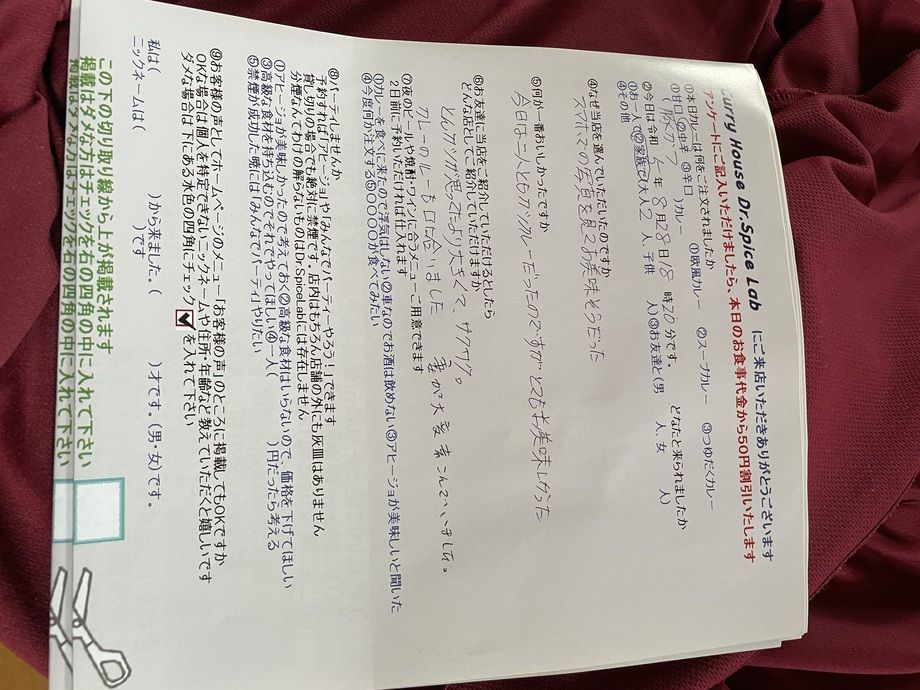 Curry House Dr.Spice Lab にご来店いただきありがとうございます
アンケートにご記入いただけましたら、本日のお食事代金から50円割引いたします
①本日カレーは何をご注文されましたか ①欧風カレー ②スープカレー ③つゆだくカレー
①甘口 ②中辛 ③辛口 )カレー
②今日は令和 年 8月28日 8時20分です。 どなたと来られましたか
①お一人で②ご家族で(大人 2 人、子供 人)③お友達と(男 人、女 人)
④その他
④なぜ当店を選んでいただいたのですか
スマホの写真を見てお美味そうだった
⑤何が一番おいしかったですか
今日は二人ともカツカレーだったのですがとてもお美味しかった
⑥お友達に当店をご紹介していただけるとしたら
どんな店としてご紹介していただけますか
とんカツが思ったよりも大きくて、サクサク。
カレーのルーも口に合いました 妻が大変喜こんでいました。
⑦夜のビールや焼酎・ワインに合うメニューご用意できます
2日前に予約いただければ仕入れます
①カレーを食べに来たので浮気はしない②車なのでお酒は飲めない③アヒージョが美味しいと聞いた
④今度何か注文する⑤〇〇〇〇が食べてみたい
⑧パーティしませんか
予約すれば「アヒージョ」や「みんなでパーティーやろう!」できます
貸し切りの場合でも絶対に禁煙です。店内はもちろん店舗の外にも灰皿はありません
分煙なんてわけの解らないものはDr.SpiceLabには存在しません
①アヒージョが美味しかったので考えておく②高級な食材はいらないので、価格を下げてほしい
③高級な食材を持ち込むのでそれでやってほしい④一人( )円だったら考える
⑤禁煙が成功した暁には「みんなでパーティ」やりたい
⑨お客様の声としてホームページのメニュー「お客様の声」のところに掲載してもOKですか
OKな場合は個人を特定できないニックネームや住所・年齢など教えていただくと嬉しいです
ダメな場合は下にある水色の四角にチェック を入れて下さい
私は( )から来ました。( )才です。(男・女)です。
ニックネームは( )です
この下の切り取り線から上が掲載されます
掲載はダメな方はチェックを右の四角の中に入れて下さい
掲載はダメな方はチェックを右の四角の中に入れて下さい